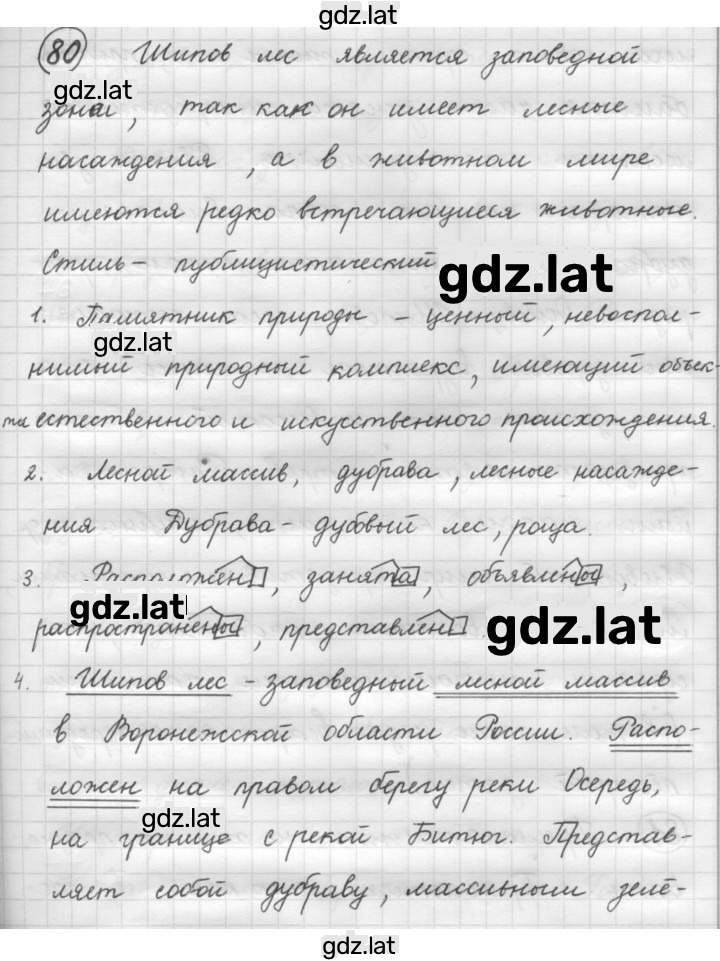 gdz.lat
80 Шипов лес является заповедной
gdz.lat
зоной, так как он имеет лесные
насаждения, а в животном мире
имеются редко встречающиеся животные.
Стиль – публицистический
gdz.lat
1. Памятник природы – ценный, невоспол-
gdz.lat
нимый природный комплекс, имеющий объек-
ты естественного и искусственного происхождения.
2. Лесной массив, дубрава, лесные насажде-
ния Дубрава – дубовый лес, роща.
3. Расположен, занята, объявлены,
gdz.lat
распространены, представлен.
gdz.lat
4. Шипов лес – заповедный лесной массив
в Воронежской области России. Распо-
ложен на правом берегу реки Осередь,
gdz.lat
на границе с рекой Битюг. Представ-
ляет собой дубраву, массивным зелё-
gdz.lat